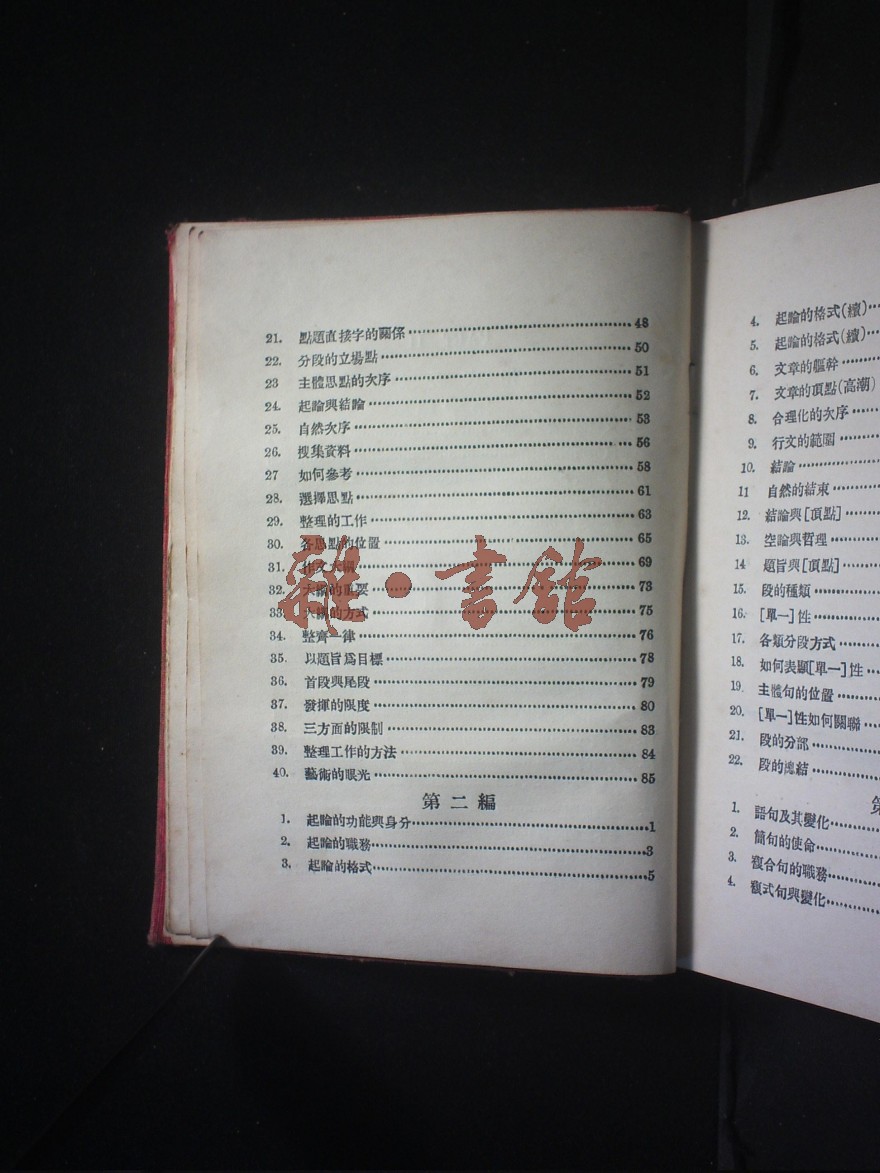 21. 點題直接字的關係 48
22. 分段的立場點 50
23 主體思點的次序 51
24. 起論與結論 52
25. 自然次序 53
26. 搜集資料 56
27 如何參考 58
28. 選擇思點 61
29. 整理的工作 63
30. 各思點的位置 65
31. 作文大綱 69
32. 大綱的重要 73
33. 大綱的方式 75
34. 整齊一律 76
35. 以題旨爲目標 78
36. 首段與尾段 79
37. 發揮的限度 80
38. 三方面的限制 83
39. 整理工作的方法 84
40. 藝術的眼光 85
第二編
1. 起論的功能與身分 1
2. 起論的職務 3
3. 起論的格式 5
雜·書館
4. 起論的格式(續)
5. 起論的格式(續)
6. 文章的軀幹
7. 文章的頂點(高潮)
8. 合理化的次序
9. 行文的範圍
10. 結論
11 自然的結束
12. 結論與[頂點]
13. 空論與哲理
14 題旨與[頂點]
15. 段的種類
16. [單一]性
17. 各類分段方式
18. 如何表顯[單一]性
19. 主體句的位置
20. [單一]性如何關聯
21. 段的分部
22. 段的總結
第
1. 語句及其變化
2. 簡句的使命
3. 複合句的職務
4. 複式句與變化